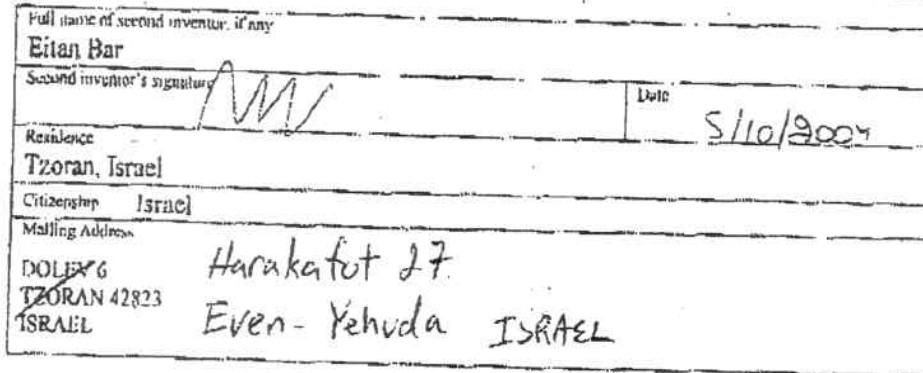 Full name of second inventor, if any
Eitan Bar
Second inventor's signature
Date
5/10/2004
Residence
Tzoran, Israel
Citizenship Israel
Mailing Address
DOLEV 6
TZORAN 42823
ISRAEL
Harakafot 27
Even-Yehuda ISRAEL